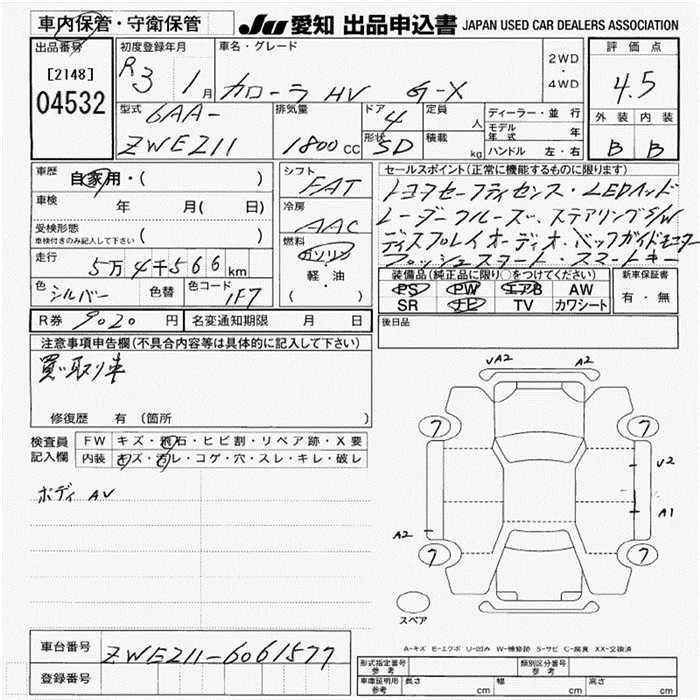 車内保管・守衛保管
JU 愛知 出品申込書 JAPAN USED CAR DEALERS ASSOCIATION
出品番号 初度登録年月 車名・グレード 評価点
[2148] R3 1月 カローラ HV G-X 2WD・4WD 4.5
04532
型式 6AA- 排気量 ドア 4 定員 人 ディーラー・並行 外装 内装
ZWE211 1800cc 形状 SD 積載 kg モデル年式 年 B B
ハンドル 左・右
車歴 自家用・( ) シフト FAT セールスポイント(正常に機能するものに限ります)
車検 年 月( 日) 冷房 AAC トヨタセーフティセンス・LEDヘッド
受検形態 ( ) レーダークルーズ、ステアリングSW
車検付きのみ記入して下さい 燃料 ガソリン ディスプレイオーディオ、バックガイドモニター
走行 5万4千566km 軽・油 プッシュスタート、スマートキー
色 シルバー 色替 色コード 1F7 ( )
装備品(純正品に限り○をつけてください) 新車保証書
PS PW エアB AW 有・無
SR ナビ TV カワシート
R券 9020円 名変通知期限 月 日 後日品
注意事項申告欄(不具合内容等は具体的に記入して下さい)
買い取り車
修復歴 有 (箇所 )
検査員記入欄 FW キズ・飛石・ヒビ割・リペア跡・X要
内装 キズ・汚レ・コゲ・穴・スレ・キレ・破レ
ボディ AV
UA2 A2
7 7
V2
A1
A2
7 7
スペア
A-キズ E-エクボ U-凹み W-補修跡 S-サビ C-腐食 XX-交換済
車台番号 ZWE211-6061577
登録番号
形式指定番号 参考 類別区分番号 参考
車庫証明用 参考 長さ cm 幅 cm 高さ cm